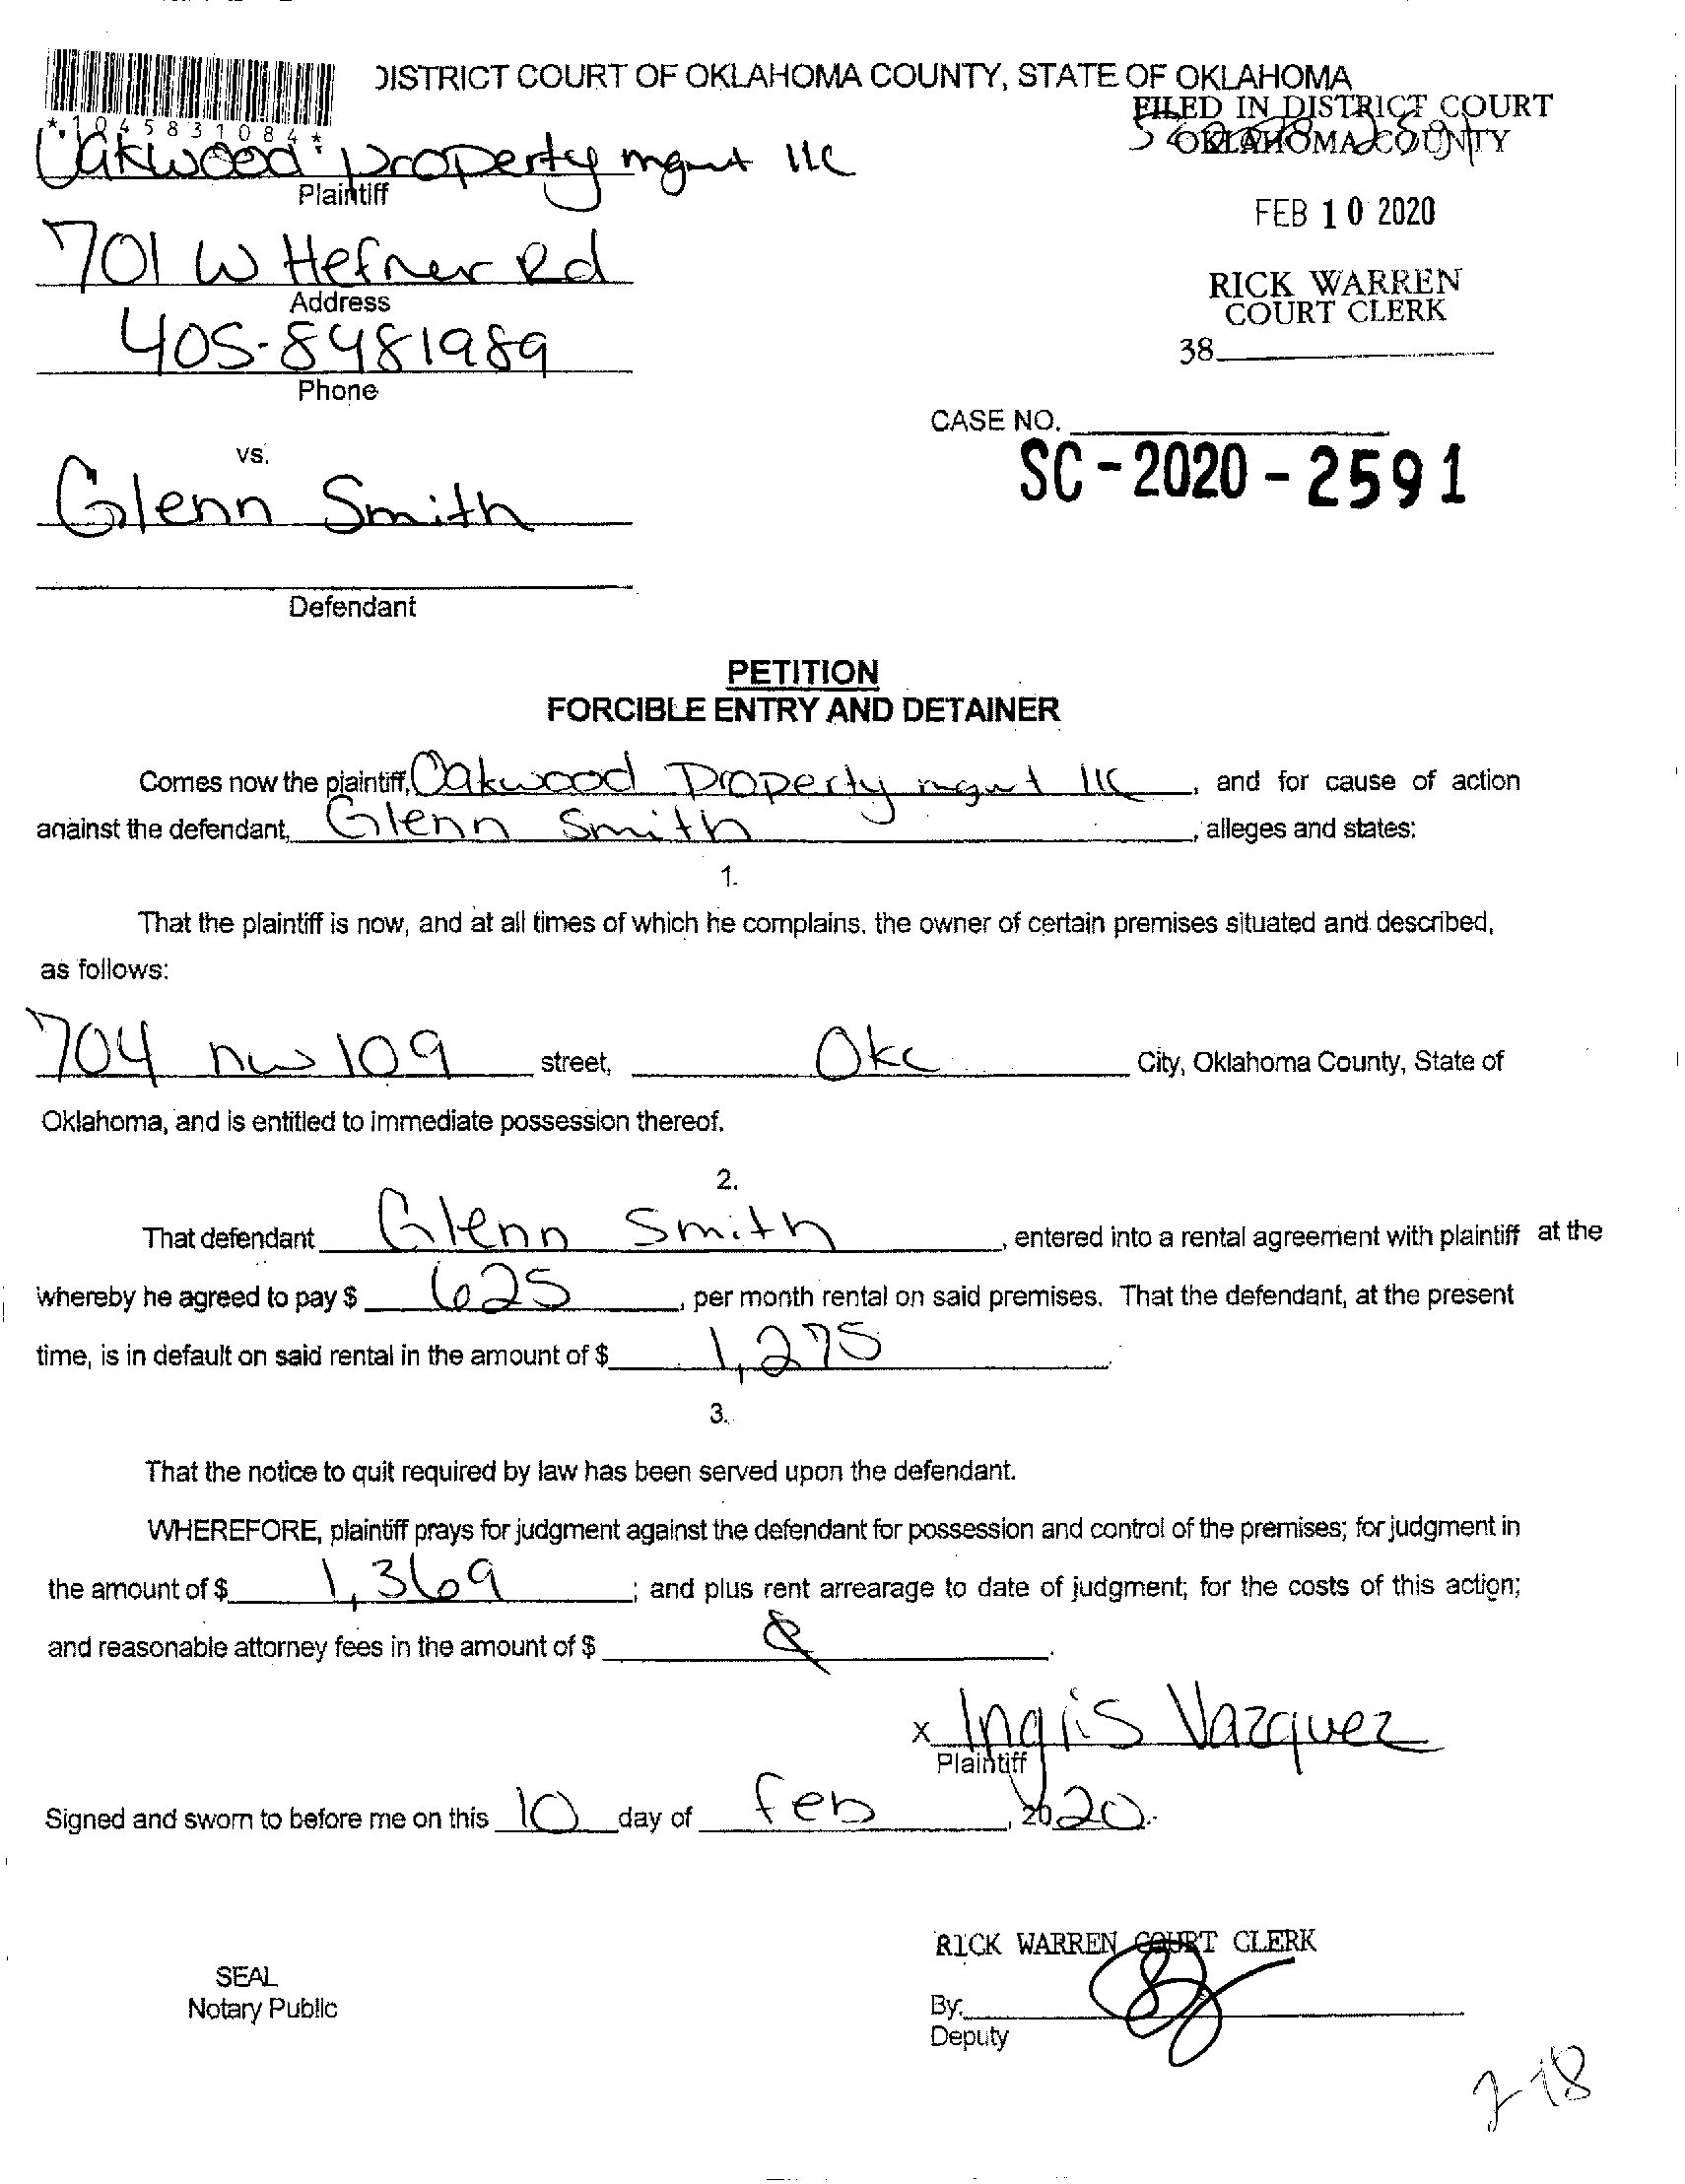 DISTRICT COURT OF OKLAHOMA COUNTY, STATE OF OKLAHOMA
FILED IN DISTRICT COURT
OKLAHOMA COUNTY
*1045831084*
Oakwood property mgmt llc
Plaintiff
FEB 10 2020
701 W Hefner Rd
Address
RICK WARREN
COURT CLERK
405-8481989
38
Phone
CASE NO.
SC-2020-2591
vs.
Glenn Smith
Defendant
PETITION
FORCIBLE ENTRY AND DETAINER
Comes now the plaintiff, Oakwood Property mgmt llc, and for cause of action
against the defendant, Glenn Smith, alleges and states:
1.
That the plaintiff is now, and at all times of which he complains, the owner of certain premises situated and described,
as follows:
704 nw 109 street, Okc City, Oklahoma County, State of
Oklahoma, and is entitled to immediate possession thereof.
2.
That defendant Glenn Smith, entered into a rental agreement with plaintiff at the
whereby he agreed to pay $ 625, per month rental on said premises. That the defendant, at the present
time, is in default on said rental in the amount of $ 1,275.
3.
That the notice to quit required by law has been served upon the defendant.
WHEREFORE, plaintiff prays for judgment against the defendant for possession and control of the premises; for judgment in
the amount of $ 1,369; and plus rent arrearage to date of judgment; for the costs of this action;
and reasonable attorney fees in the amount of $
x Inglis Vazquez
Plaintiff
Signed and sworn to before me on this 10 day of feb, 2020.
RICK WARREN COURT CLERK
SEAL
Notary Public
By:
Deputy
2-18